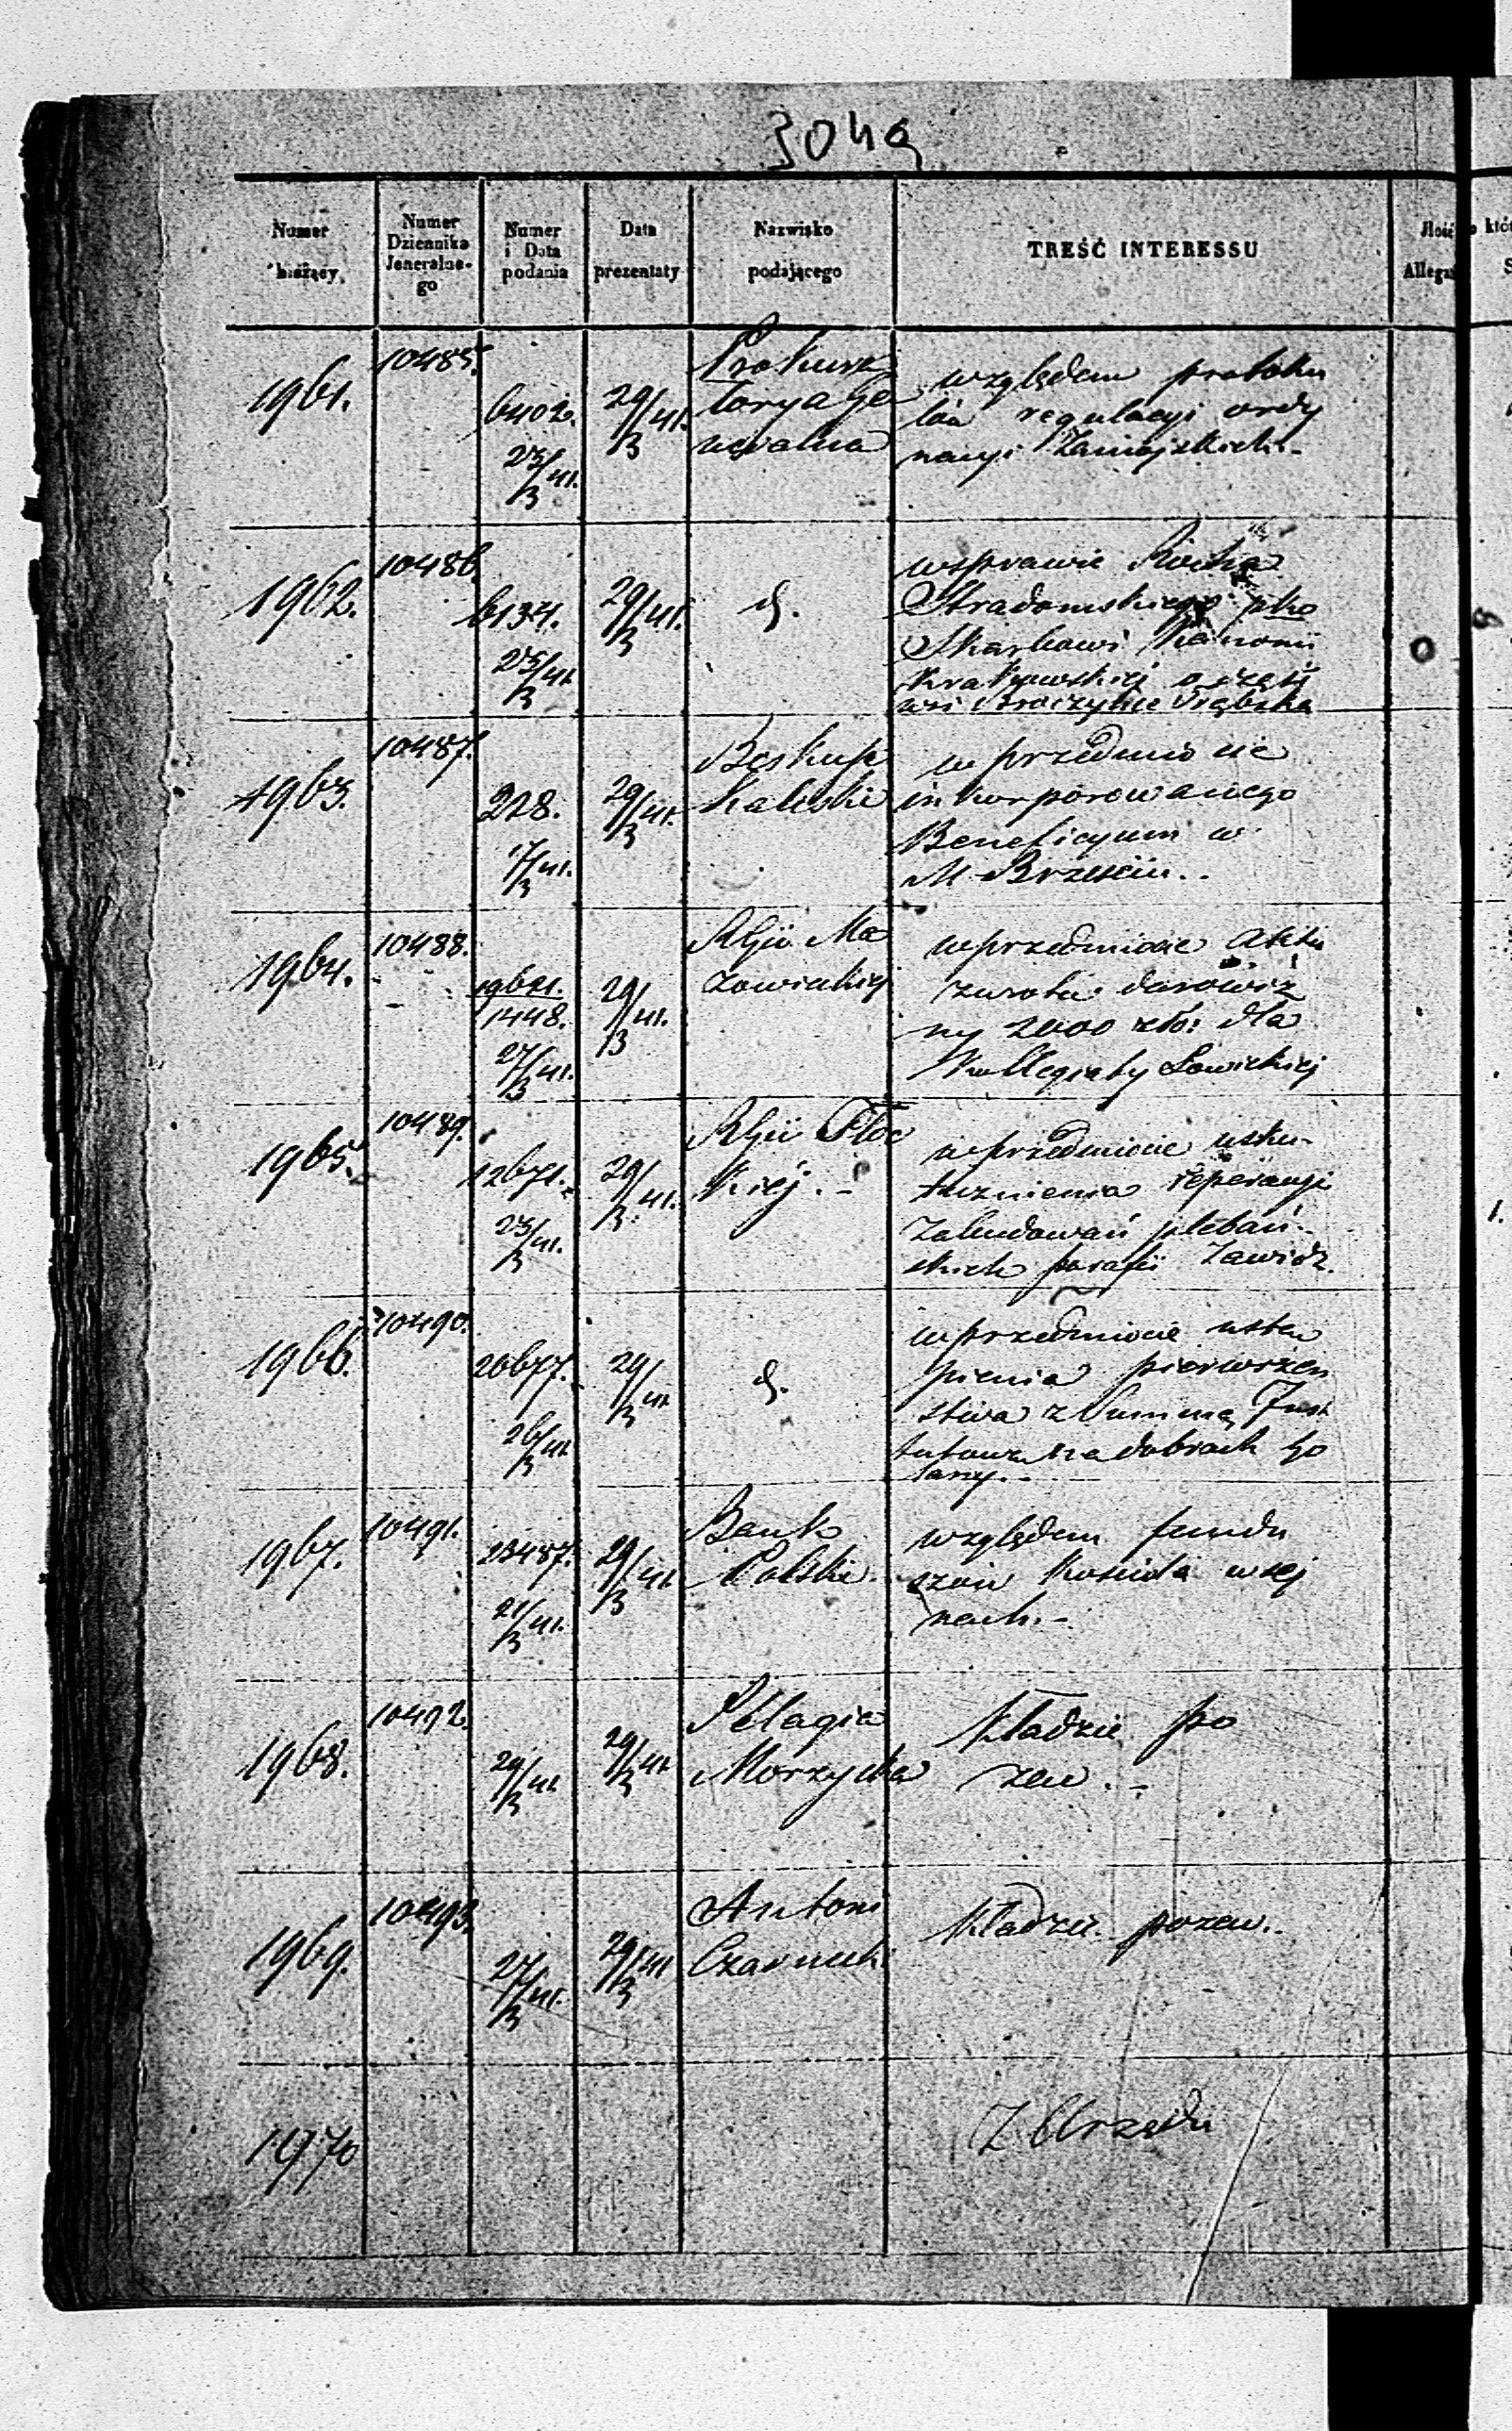 Numer bieżący
Numer Dziennika Jeneralne-go
Numer i Data podania
Data prezentaty
Nazwisko podającego
TREŚĆ INTERESSU
Ilość
1961. 10485. 6402. 25/3 41. 29/3 41. Prokura
torya Ge
neralna
względem protoku
łów regulacyi ordy
nacyi Zamojskich.-
1962. 10486. 6134. 25/3 41. 29/3 41. d.
wsprawie Rocha
Stradomskiego pko
Skarbowi
Krakowskiej o część
wsi
1963. 10487. 228. 17/3 41. 29/3 41. Biskup
Kaliski
w przedmiocie
inkorporowanego
Beneficyum w
M. Brześciu..
1964. 10488. 19621./1448. 27/3 41. 29/3 41. Rkgii Ma
zowieckiej
wprzedmiocie aktu
darowiz
ny 2000 złó: dla
Kollegiaty Łowickiej
1965. 10489. 12671. 23/3 41. 29/3 41. Płoc
kiej.-
wprzedmiocie usku-
tecznienia reperacyi
Zabudowań plebań-
skich parafii Zawidz.
1966. 10490. 20677. 26/3 41 29/3 41 d.
wprzedmiocie ustą
pienia pierwszeń
stwa z Summą Inst
na dobrach Go
łany.-
1967. 10491. 23487. 21/3 41. 29/3 41. Bank
Polski.
względem fundu
szów Kościoła w Sej
nach.-
1968. 10492. 29/3 41 29/3 41 Pelagia
Morzycka
Kładzie po
zew.-
1969. 10493. 27/3 41. 29/3 41 Antoni
Czarnecki
Kładzie pozew.-
1970
Z Urzędu